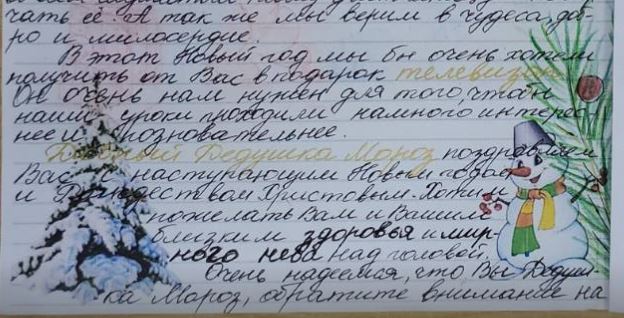 чать её. А так же мы верим в чудеса, доб-
ро и милосердие.
В этот Новый год мы бы очень хотели
получить от Вас в подарок телевизор.
Он очень нам нужен для того, чтобы
наши уроки проходили намного интерес-
нее и познавательнее.
Добрый Дедушка Мороз поздравляем
Вас с наступающим Новым годом
и Рождеством Христовым. Хотим
пожелать Вам и Вашим
близким здоровья и мир-
ного неба над головой.
Очень надеемся, что Вы Дедуш-
ка Мороз, обратите внимание на